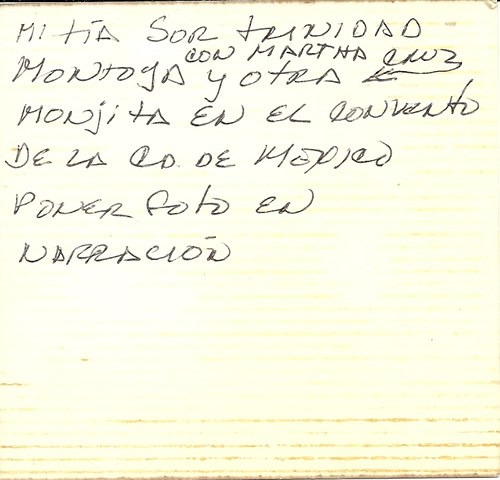 MI tíA SOR tRINIDAD
CON MARTHA CRUZ
MONtOyA y OtRA
MONjItA EN EL CONVENtO
DE LA CD. DE MéXICO
PONER FOtO EN
NARRACIÓN